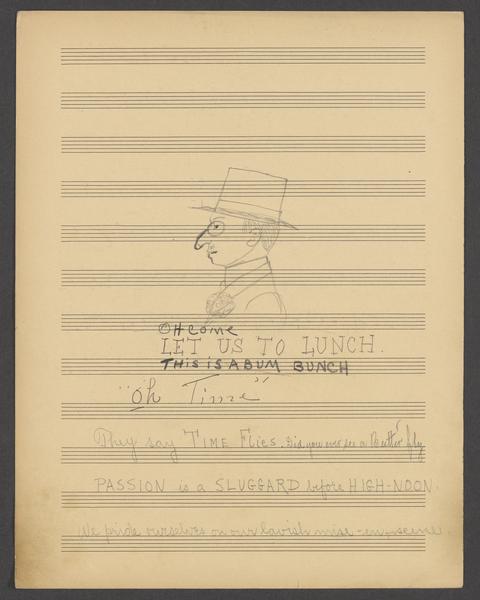 OH COME
LET US TO LUNCH.
THIS IS A BUM BUNCH
"Oh Time"
They say TIME FLIES. Did you ever see a Butter fly
PASSION is a SLUGGARD before HIGH-NOON.
We pride ourselves on our lavish mise-en-scene.